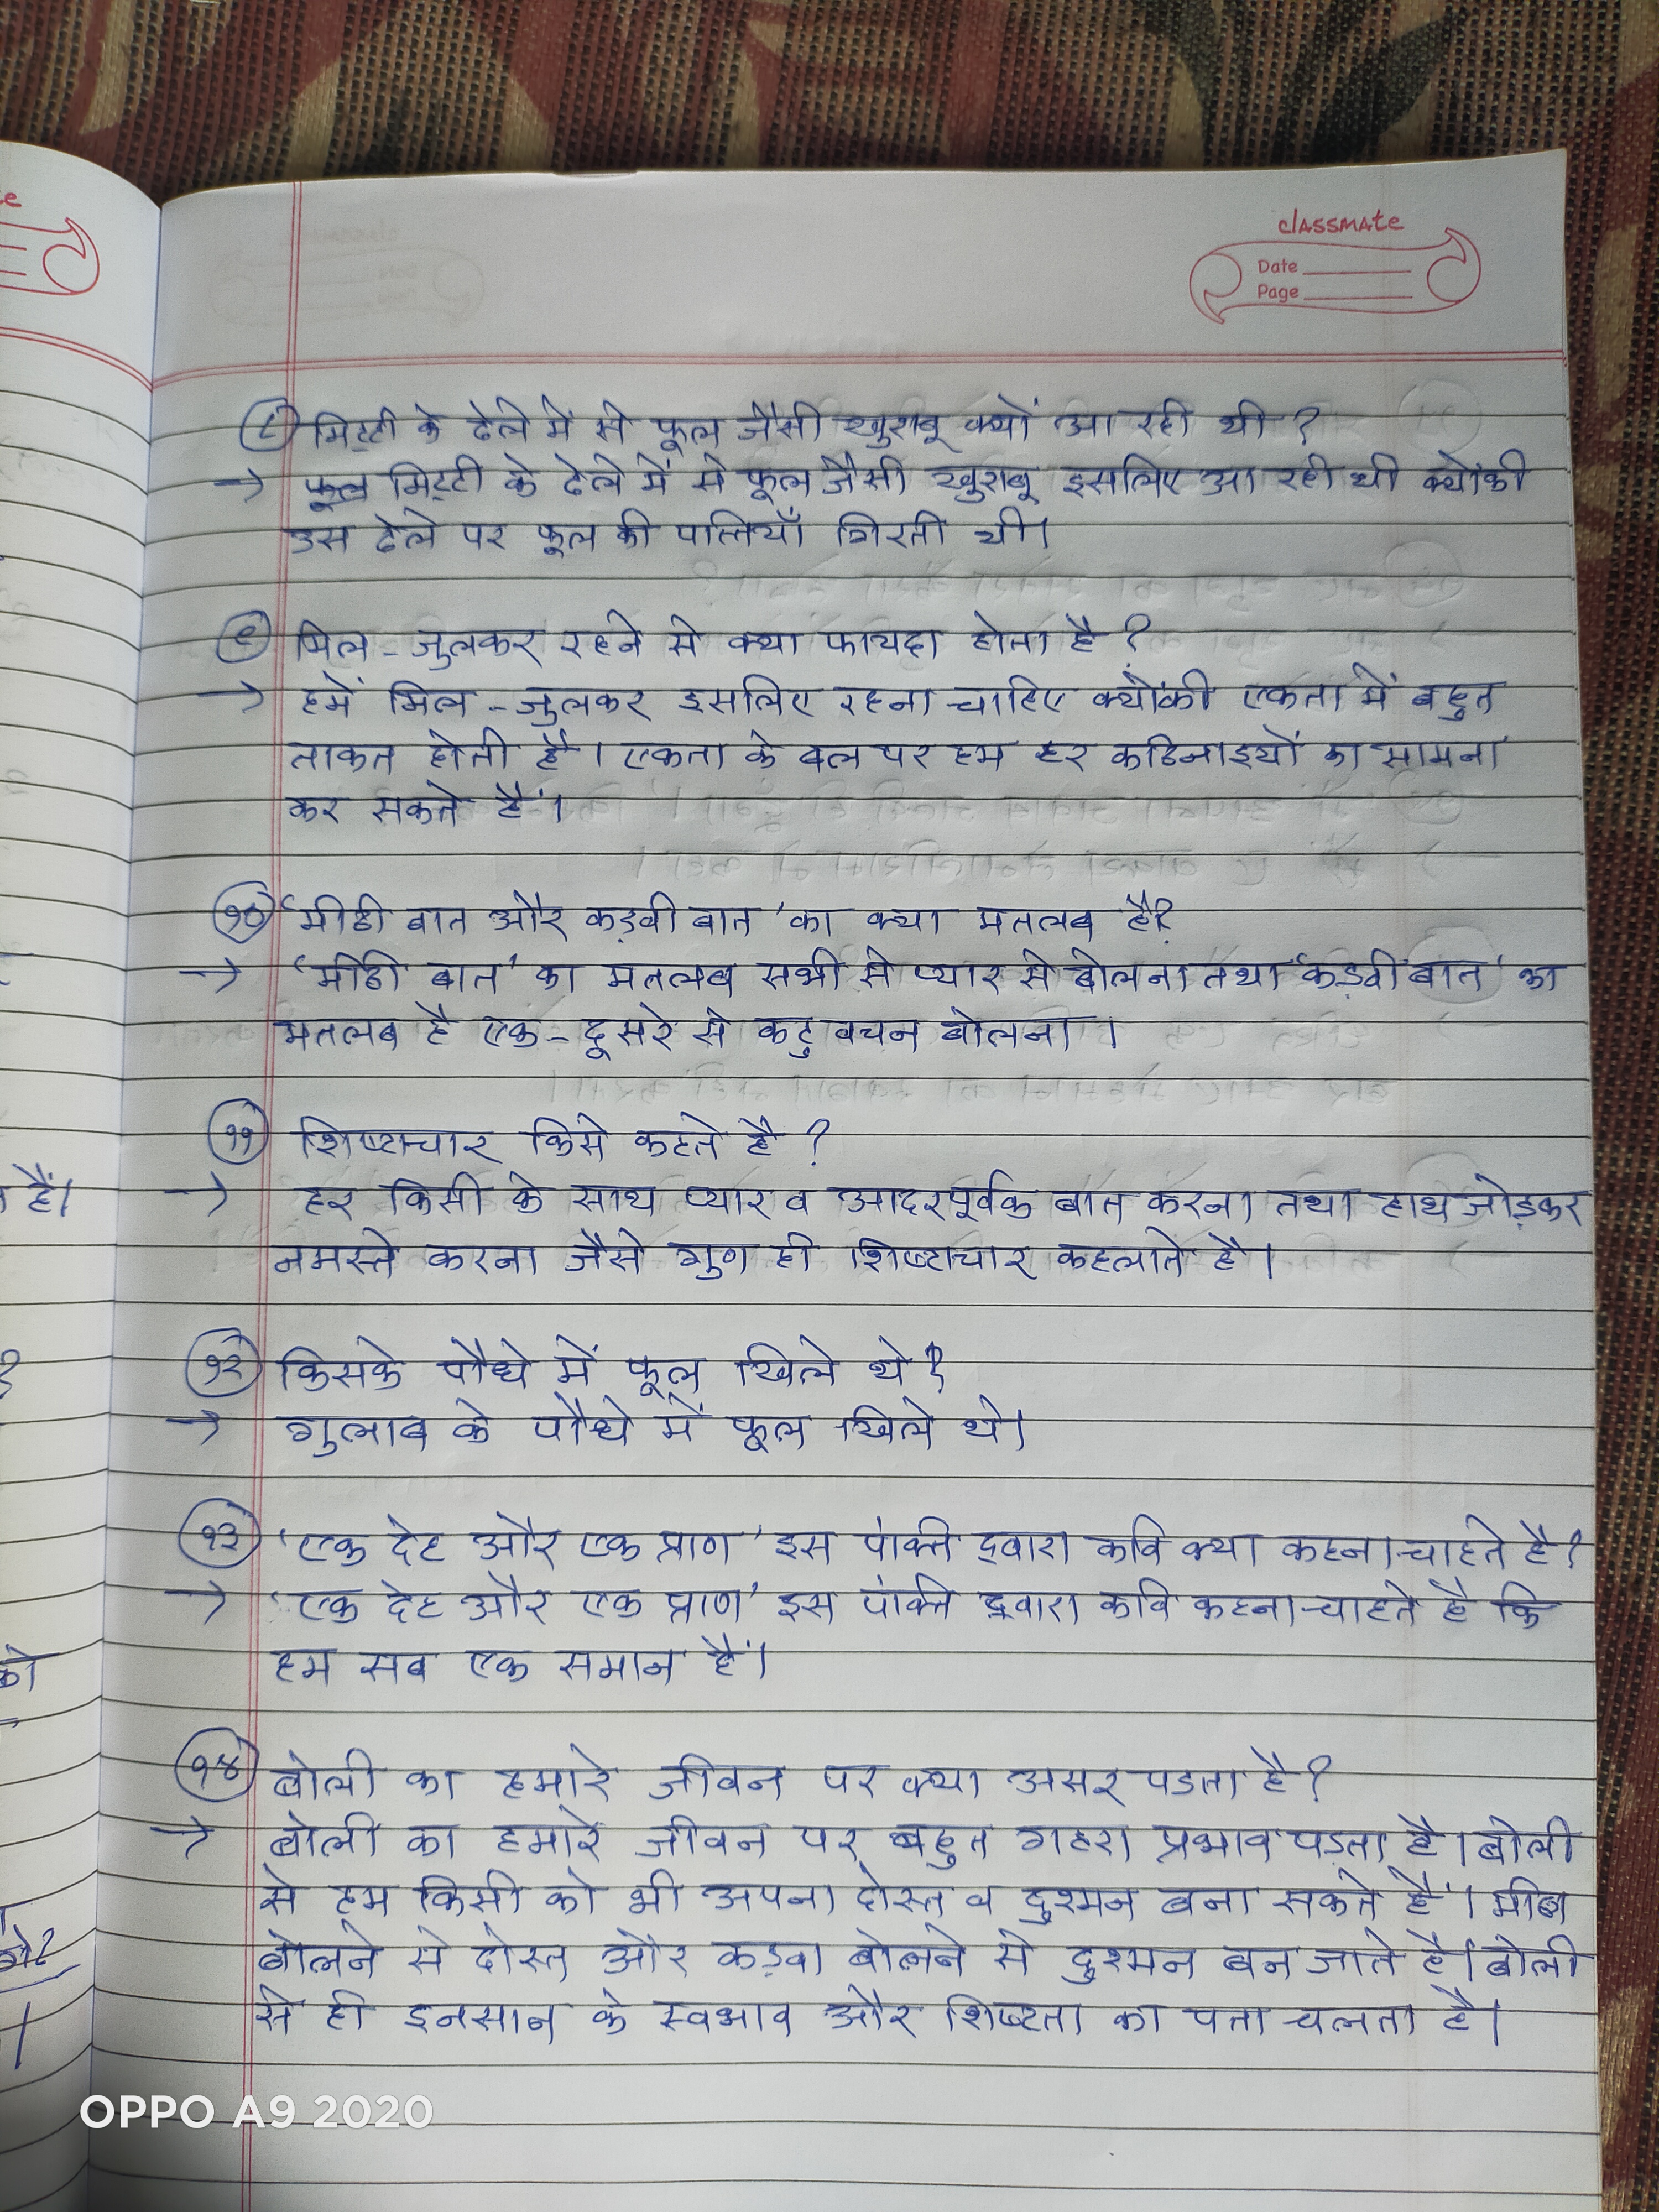 classmate
Date
Page
८ मिट्टी के ढेले में से फूल जैसी खुशबू क्यों आ रही थी ?
→ फूल मिट्टी के ढेले में से फूल जैसी खुशबू इसलिए आ रही थी क्योंकी
उस ढेले पर फूल की पत्तियाँ गिरती थी।
९ मिल - जुलकर रहने से क्या फायदा होता है ?
→ हमें मिल - जुलकर इसलिए रहना चाहिए क्योंकी एकता में बहुत
ताकत होती है । एकता के बल पर हम हर कठिनाइयों का सामना
कर सकते हैं।
१० 'मीठी बात और कड़वी बात' का क्या मतलब है?
→ 'मीठी बात' का मतलब सभी से प्यार से बोलना तथा 'कड़वी बात' का
मतलब है एक - दूसरे से कटु वचन बोलना ।
११ शिष्टाचार किसे कहते है ?
→ हर किसी के साथ प्यार व आदरपूर्वक बात करना तथा हाथ जोड़कर
नमस्ते करना जैसे गुण ही शिष्टाचार कहलाते है।
१२ किसके पौधे में फूल खिले थे ?
→ गुलाब के पौधे में फूल खिले थे।
१३ 'एक देह और एक प्राण' इस पंक्ति द्वारा कवि क्या कहना चाहते है ?
→ 'एक देह और एक प्राण' इस पंक्ति द्वारा कवि कहना चाहते है कि
हम सब एक समान हैं।
१४ बोली का हमारे जीवन पर क्या असर पडता है ?
→ बोली का हमारे जीवन पर बहुत गहरा प्रभाव पड़ता है । बोली
से हम किसी को भी अपना दोस्त व दुश्मन बना सकते हैं । मीठा
बोलने से दोस्त और कड़वा बोलने से दुश्मन बन जाते है। बोली
से ही इनसान के स्वभाव और शिष्टता का पता चलता है।
OPPO A9 2020